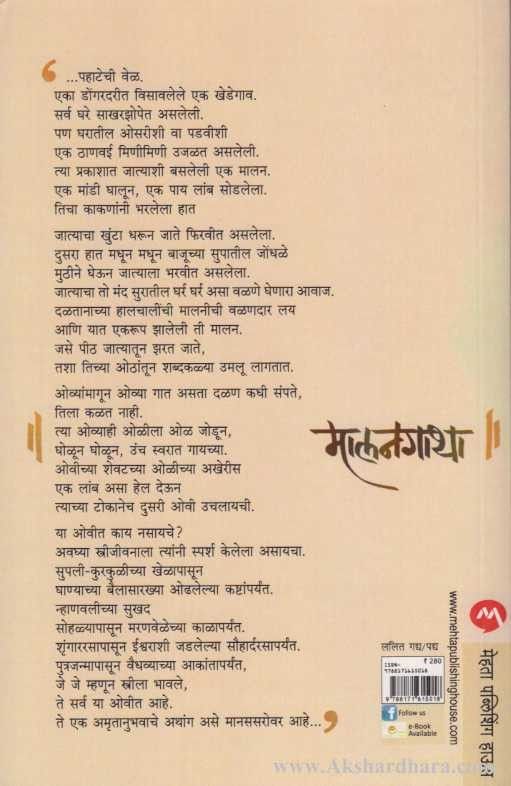 ...पहाटेची वेळ.
एका डोंगरदरीत विसावलेले एक खेडेगाव.
सर्व घरे साखरझोपेत असलेली.
पण घरातील ओसरीशी वा पडवीशी
एक ठाणवई मिणीमिणी उजळत असलेली.
त्या प्रकाशात जात्याशी बसलेली एक मालन.
एक मांडी घालून, एक पाय लांब सोडलेला.
तिचा काकणांनी भरलेला हात
जात्याचा खुंटा धरून जाते फिरवीत असलेला.
दुसरा हात मधून मधून बाजूच्या सुपातील जोंधळे
मुठीने घेऊन जात्याला भरवीत असलेला.
जात्याचा तो मंद सुरातील घर्र घर्र असा वळणे घेणारा आवाज.
दळतानाच्या हालचालींची मालनीची वळणदार लय
आणि यात एकरूप झालेली ती मालन.
जसे पीठ जात्यातून झरत जाते,
तशा तिच्या ओठांतून शब्दकळ्या उमलू लागतात.
ओव्यांमागून ओव्या गात असता दळण कधी संपते,
तिला कळत नाही.
त्या ओव्याही ओळीला ओळ जोडून,
घोळून घोळून, उंच स्वरात गायच्या.
ओवीच्या शेवटच्या ओळीच्या अखेरीस
एक लांब असा हेल देऊन
त्याच्या टोकानेच दुसरी ओवी उचलायची.
या ओवीत काय नसायचे?
अवघ्या स्त्रीजीवनाला त्यांनी स्पर्श केलेला असायचा.
सुपली-कुरकुळीच्या खेळापासून
घाण्याच्या बैलासारख्या ओढलेल्या कष्टांपर्यंत.
न्हाणवलीच्या सुखद
सोहळ्यापासून मरणवेळेच्या काळापर्यंत.
शृंगाररसापासून ईश्वराशी जडलेल्या सौहार्दरसापर्यंत.
पुत्रजन्मापासून वैधव्याच्या आकांतापर्यंत,
जे जे म्हणून स्त्रीला भावले,
ते सर्व या ओवीत आहे.
ते एक अमृतानुभवाचे अथांग असे मानससरोवर आहे...
मालनगाथा
ललित गद्य/पद्य
₹ 280
ISBN-
9788171615018
9 788171 615018
Follow us
e-Book
Available
www.mehtapublishinghouse.com
मेहता पब्लिशिंग हाऊस
www.Akshardhara.com